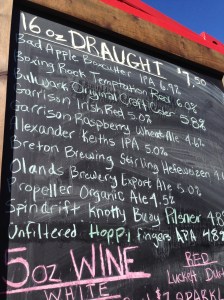 16 oz DRAUGHT $7.50
Bad Apple Boxcutter IPA 6.9%
Boxing Rock Temptation Red 6.0%
Bulwark Original Craft Cider 5.8%
Garrison Irish Red 5.0%
Garrison Raspberry Wheat Ale 4.6%
Alexander Keiths IPA 5.0%
Breton Brewing Stirling Hefeweizen
Olands Brewery Export Ale 5.0%
Propeller Organic Ale 4.5%
Spindrift Knotty Buoy Pilsner 4.8%
Unfiltered Hoppy fingers APA 4.8
5oz WINE RED
WHITE Luckett